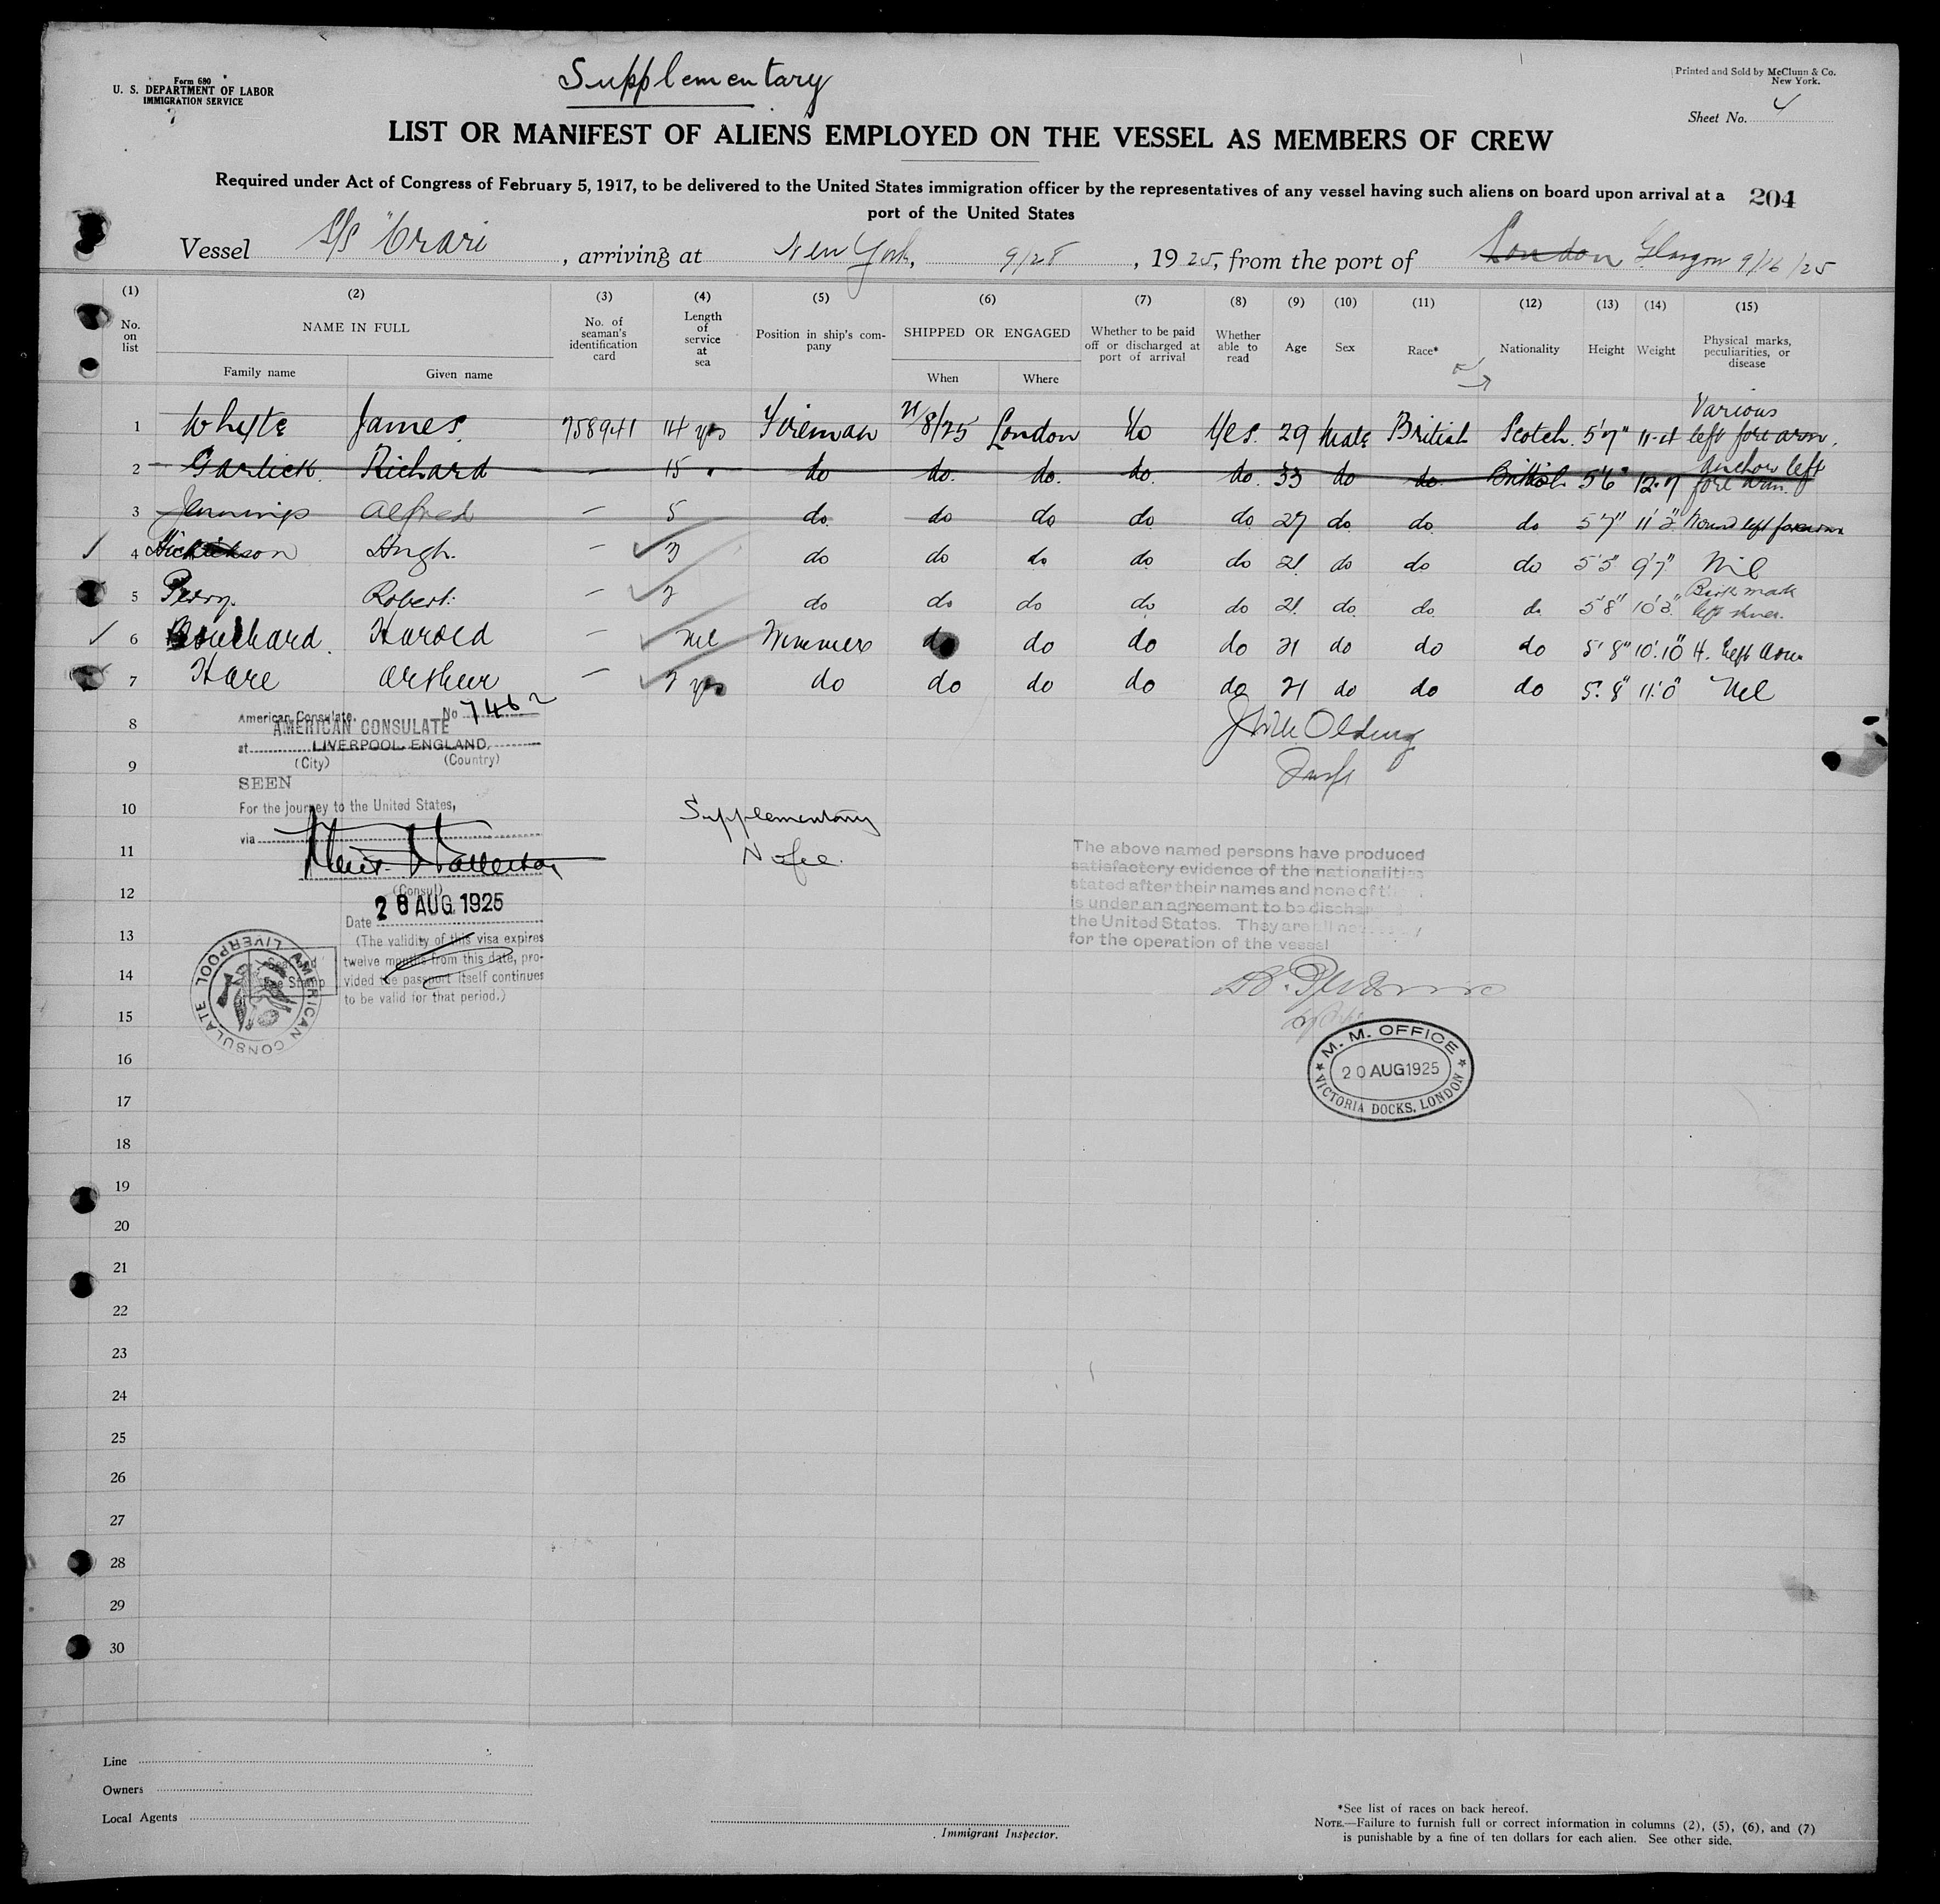 Form 680
U. S. DEPARTMENT OF LABOR
IMMIGRATION SERVICE
Supplementary
Printed and Sold by McClunn & Co.
New York.
Sheet No. 4
LIST OR MANIFEST OF ALIENS EMPLOYED ON THE VESSEL AS MEMBERS OF CREW
Required under Act of Congress of February 5, 1917, to be delivered to the United States immigration officer by the representatives of any vessel having such aliens on board upon arrival at a
port of the United States
204
Vessel S/S "Orari , arriving at New York, 9/28 , 1925, from the port of London Glasgow 9/16/25
(1) (2) (3) (4) (5) (6) (7) (8) (9) (10) (11) (12) (13) (14) (15)
No. on list
NAME IN FULL
Family name Given name
No. of seaman's identification card
Length of service at sea
Position in ship's company
SHIPPED OR ENGAGED
When Where
Whether to be paid off or discharged at port of arrival
Whether able to read
Age
Sex
Race*
Nationality
Height
Weight
Physical marks, peculiarities, or disease
1 Whyte James. 758941 14 yrs Fireman 21/8/25 London No Yes. 29 Male British Scotch. 5'7" 11-4 Various left fore arm.
2 Garlick. Richard — 15 " do do. do. do. do. 33 do do British 5'6" 12.7 Anchor left fore arm.
3 Jennings Alfred — 5 do do do do do 27 do. do. do 5'7" 11'2" Wound left forearm
4 Hugh. — 3 do do do do do 21. do do do 5'5" 9'7" Nil
5 Perry. Robert. — 2 do do do do do 21. do. do. do 5'8" 10'3" Birth mark left
6 Bouchard. Harold — nil Trimmers do do do do 21 do do do 5'8" 10'.10" H. left arm
7 Hare Arthur — 2 yrs do do do do do 21 do do do 5'.8" 11'.0" Nil
8
9
10
11
12
13
14
15
16
17
18
19
20
21
22
23
24
25
26
27
28
29
30
American Consulate. No 7462
AMERICAN CONSULATE
at LIVERPOOL, ENGLAND.
(City) (Country)
SEEN
For the journey to the United States,
via
(Consul)
Date 28 AUG. 1925
(The validity of this visa expires
twelve months from this date, pro-
vided the passport itself continues
to be valid for that period.)
AMERICAN CONSULATE LIVERPOOL
Olding
Supplementary
No fee.
The above named persons have produced
satisfactory evidence of the nationalities
stated after their names and none of
is under an agreement to be
the United States. They are all
for the operation of the vessel
M. M. OFFICE
20 AUG 1925
VICTORIA DOCKS, LONDON
Line
Owners
Local Agents
Immigrant Inspector.
*See list of races on back hereof.
NOTE.—Failure to furnish full or correct information in columns (2), (5), (6), and (7)
is punishable by a fine of ten dollars for each alien. See other side.